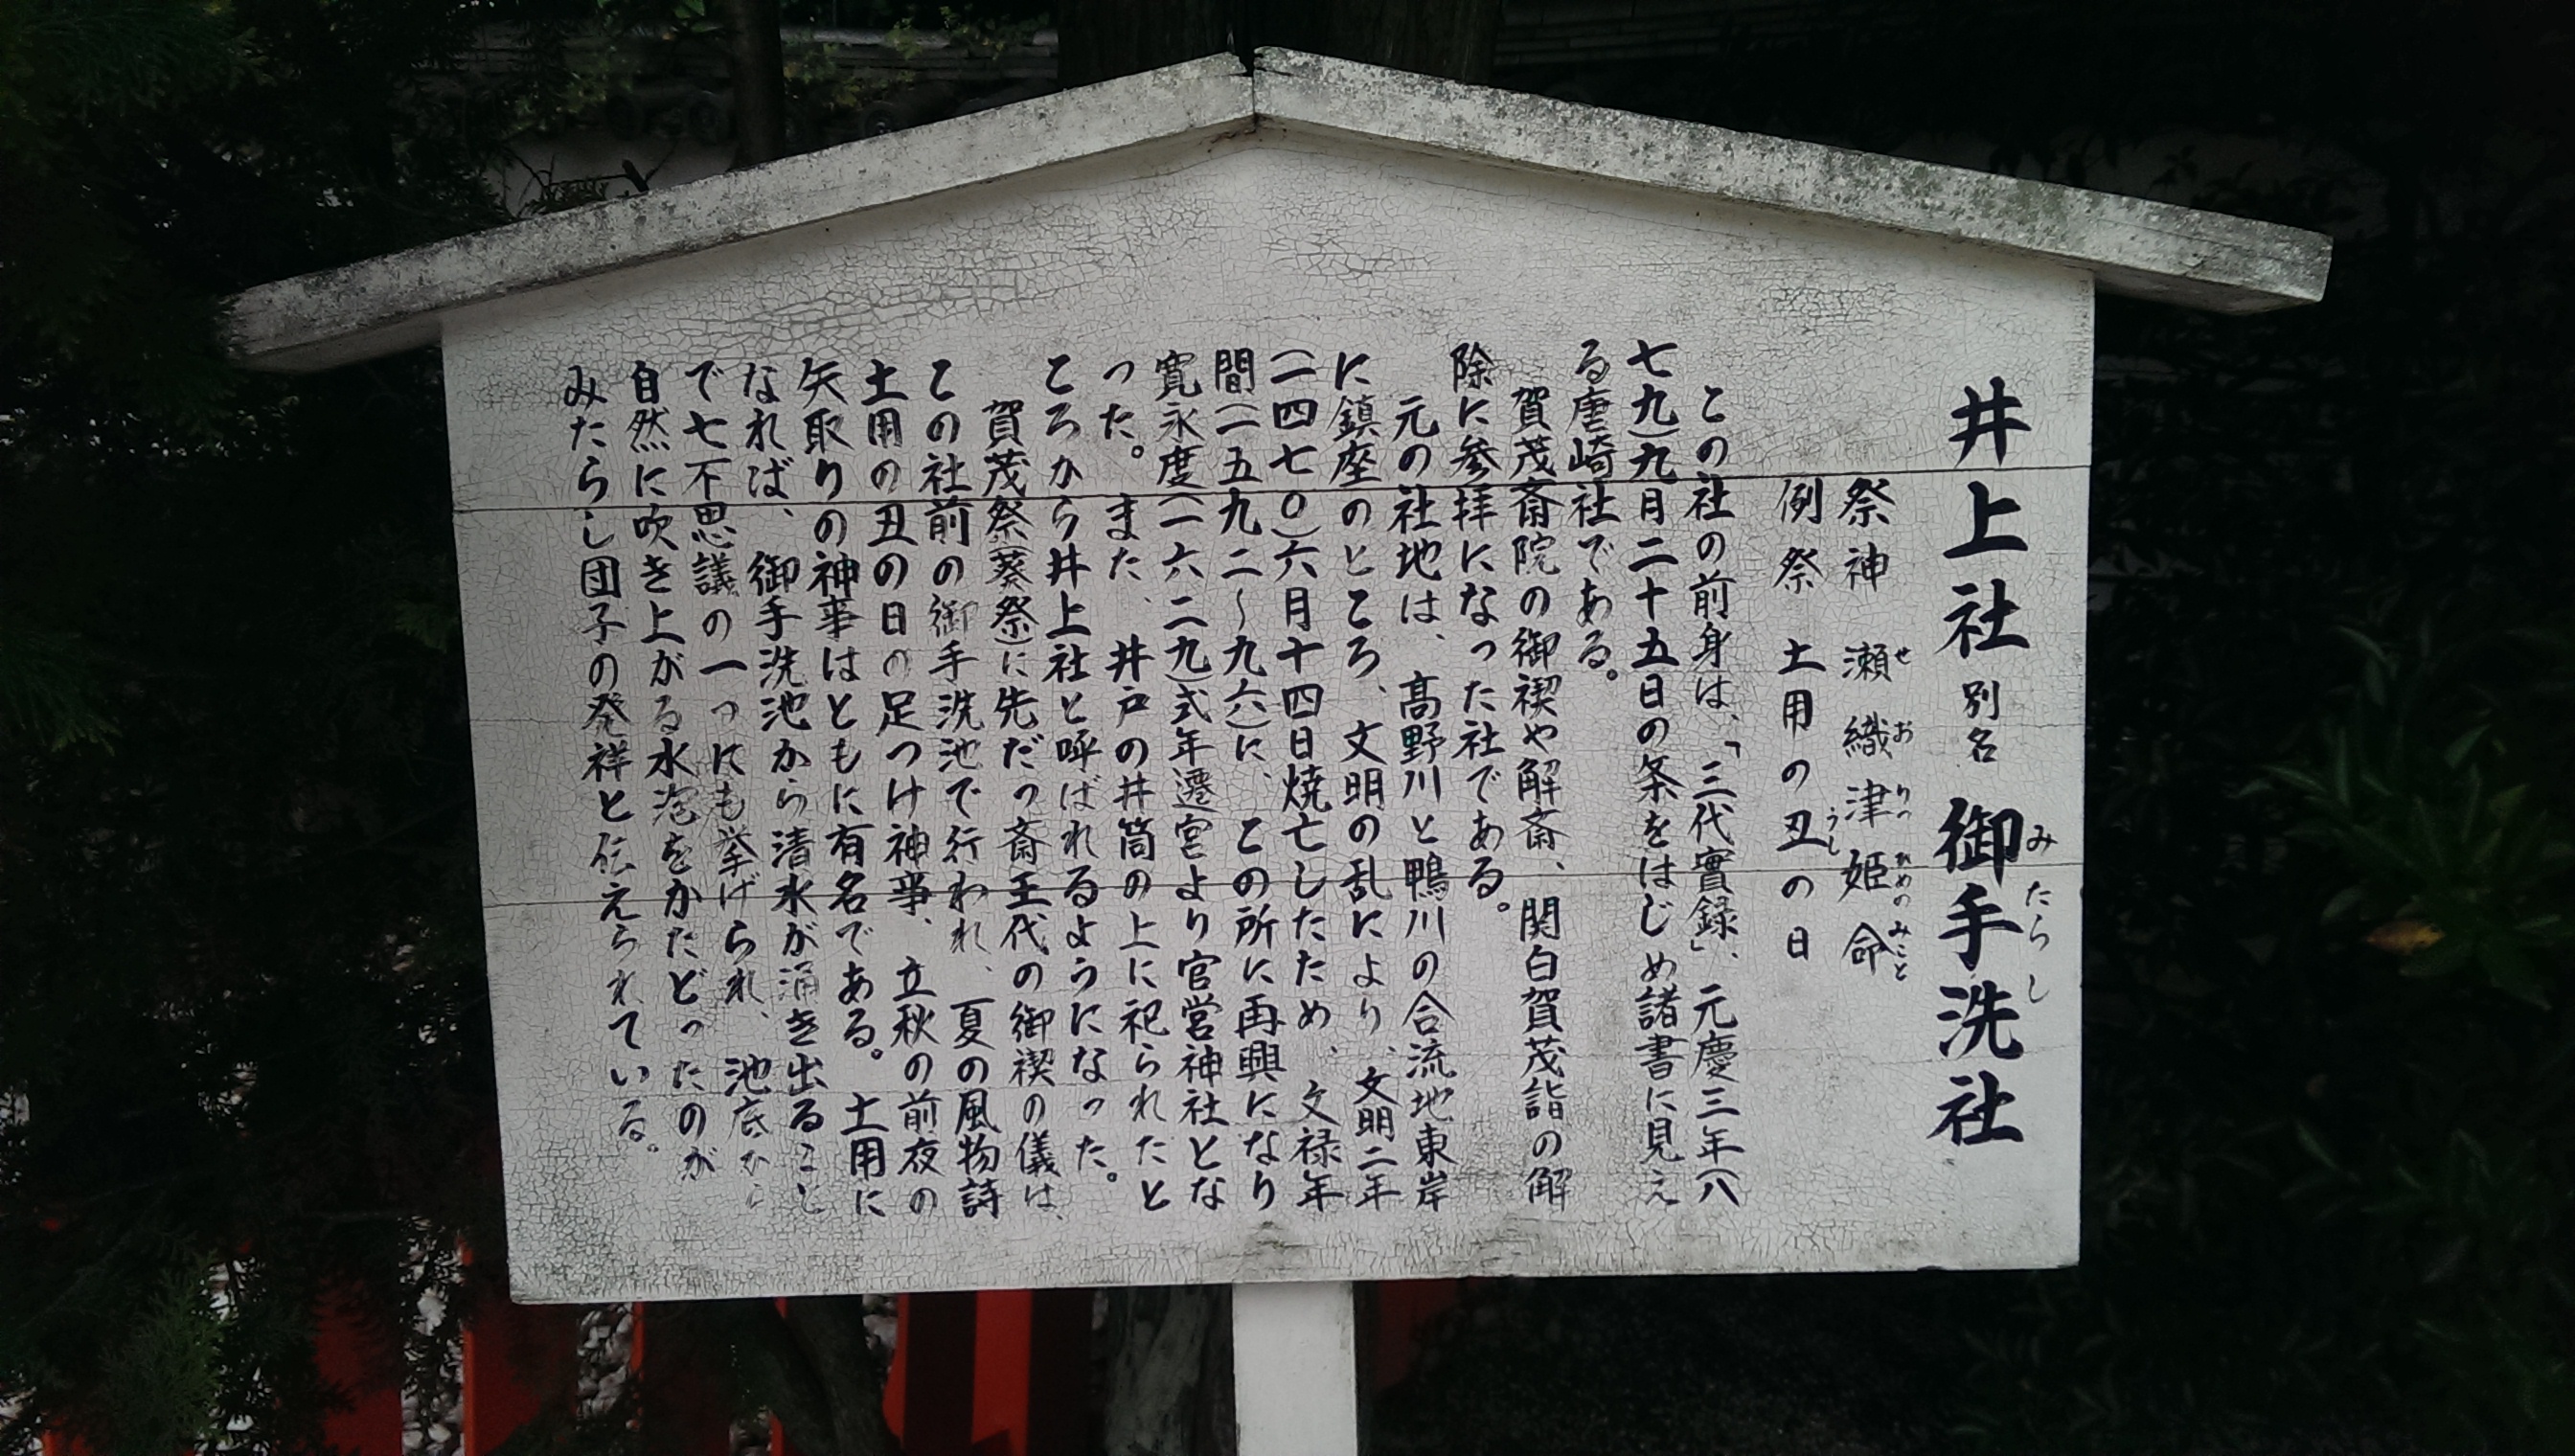 井上社 別名 御手洗社
みたらし
祭神 瀬織津姫命
せおりつひめのみこと
例祭 土用の丑の日
うし
この社の前身は、「三代實録」、元慶三年(八
七九)九月二十五日の条をはじめ諸書に見え
る唐崎社である。
賀茂斎院の御禊や解斎、関白賀茂詣の解
除に参拝になった社である。
元の社地は、高野川と鴨川の合流地東岸
に鎮座のところ、文明の乱により、文明二年
(一四七〇)六月十四日焼亡したため、文禄年
間(一五九二~九六)に、この所に再興になり
寛永度(一六二九)式年遷宮より官営神社とな
った。また、井戸の井筒の上に祀られたと
ころから井上社と呼ばれるようになった。
賀茂祭(葵祭)に先だつ斎王代の御禊の儀は、
この社前の御手洗池で行われ、夏の風物詩
土用の丑の日の足つけ神事、立秋の前夜の
矢取りの神事はともに有名である。土用に
なれば、御手洗池から清水が涌き出ること
で七不思議の一つにも挙げられ、池底から
自然に吹き上がる水泡をかたどったのが
みたらし団子の発祥と伝えられている。